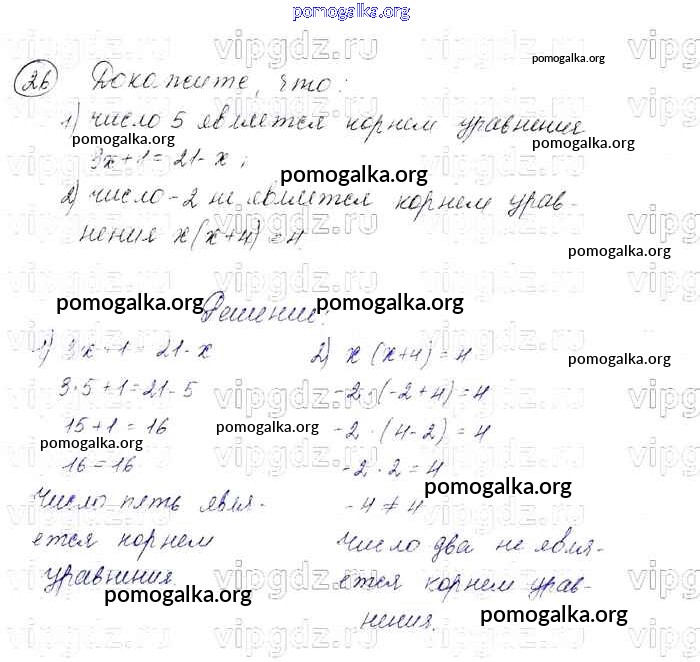 pomogalka.org
26 Докажите, что:
1) число 5 является корнем уравнения
3x+1=21-x;
2) число -2 не является корнем урав-
нения x(x+4)=4.
Решение:
1) 3x+1=21-x
3·5+1=21-5
15+1=16
16=16
Число пять явля-
ется корнем
уравнения.
2) x(x+4)=4
-2·(-2+4)=4
-2·(4-2)=4
-2·2=4
-4≠4
Число два не явля-
ется корнем урав-
нения.
vipgdz.ru
pomogalka.org